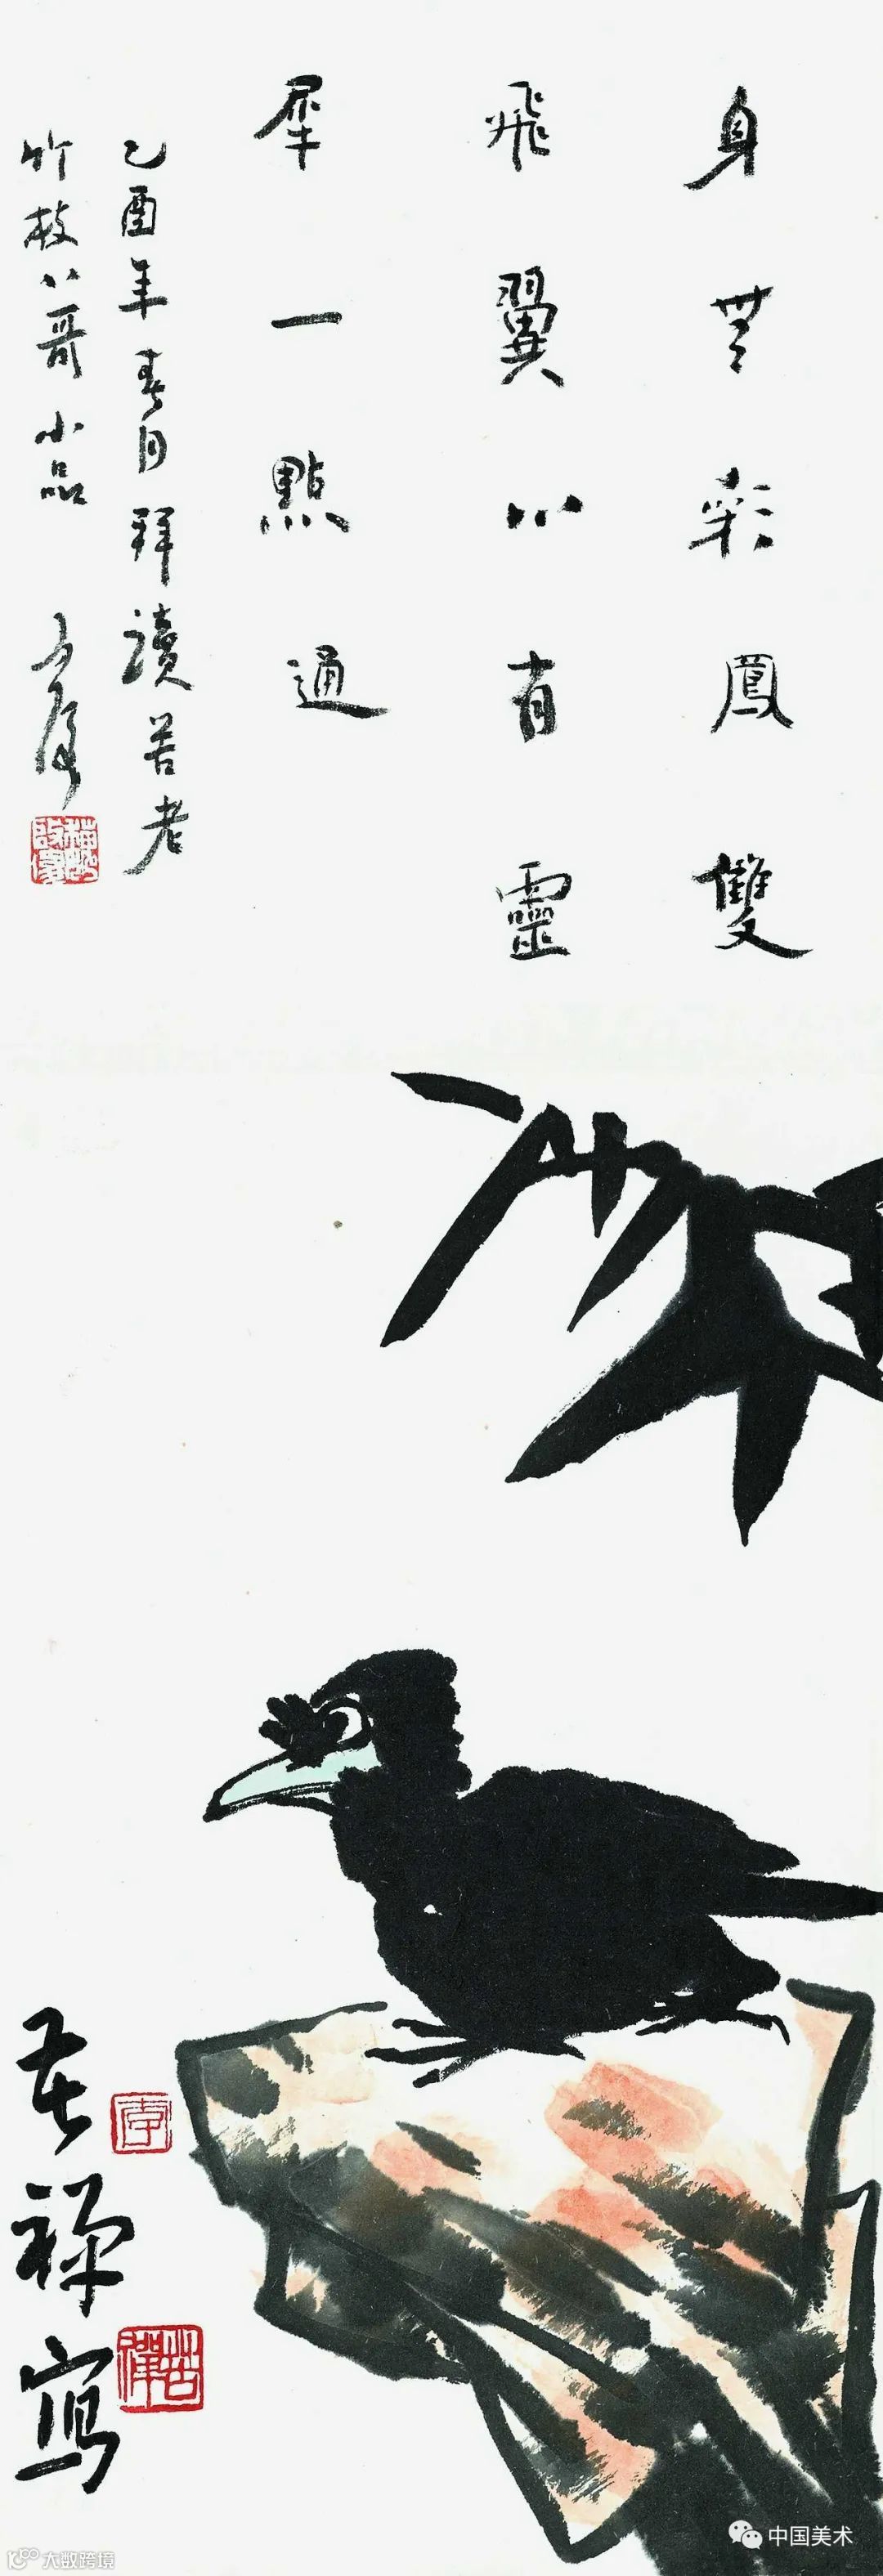 身無彩鳳雙
飛翼心有靈
犀一點通
乙酉年春月拜讀苦老
竹枝八哥小品
苦禪寫
李
苦禪
中国美术
大数跨境